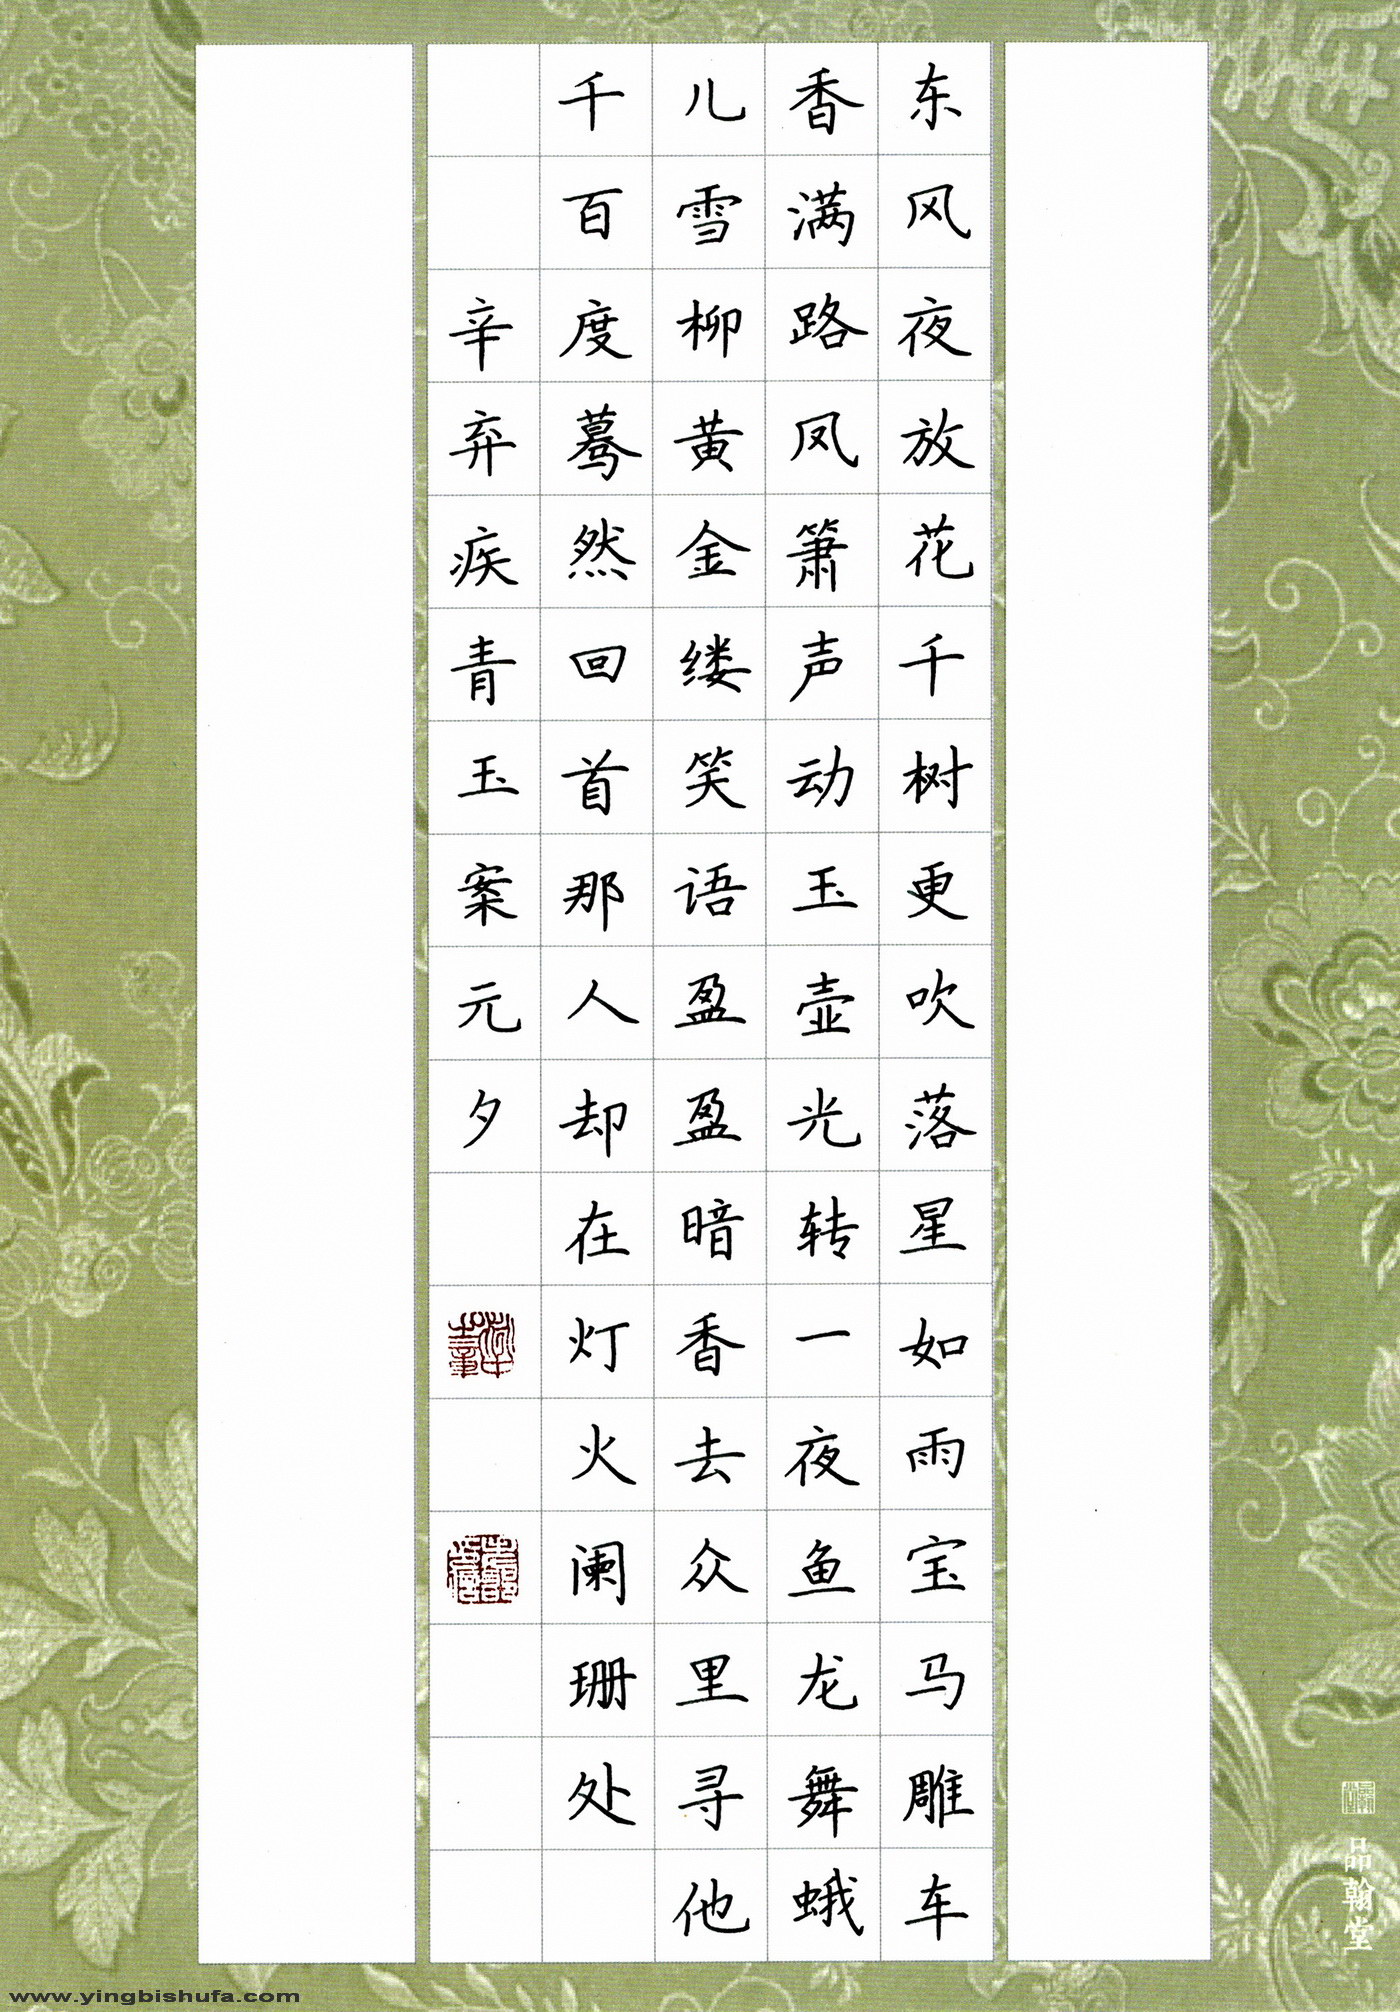 东风夜放花千树更吹落星如雨宝马雕车
香满路凤箫声动玉壶光转一夜鱼龙舞蛾
儿雪柳黄金缕笑语盈盈暗香去众里寻他
千百度蓦然回首那人却在灯火阑珊处
辛弃疾青玉案元夕
品翰堂
www.yingbishufa.com